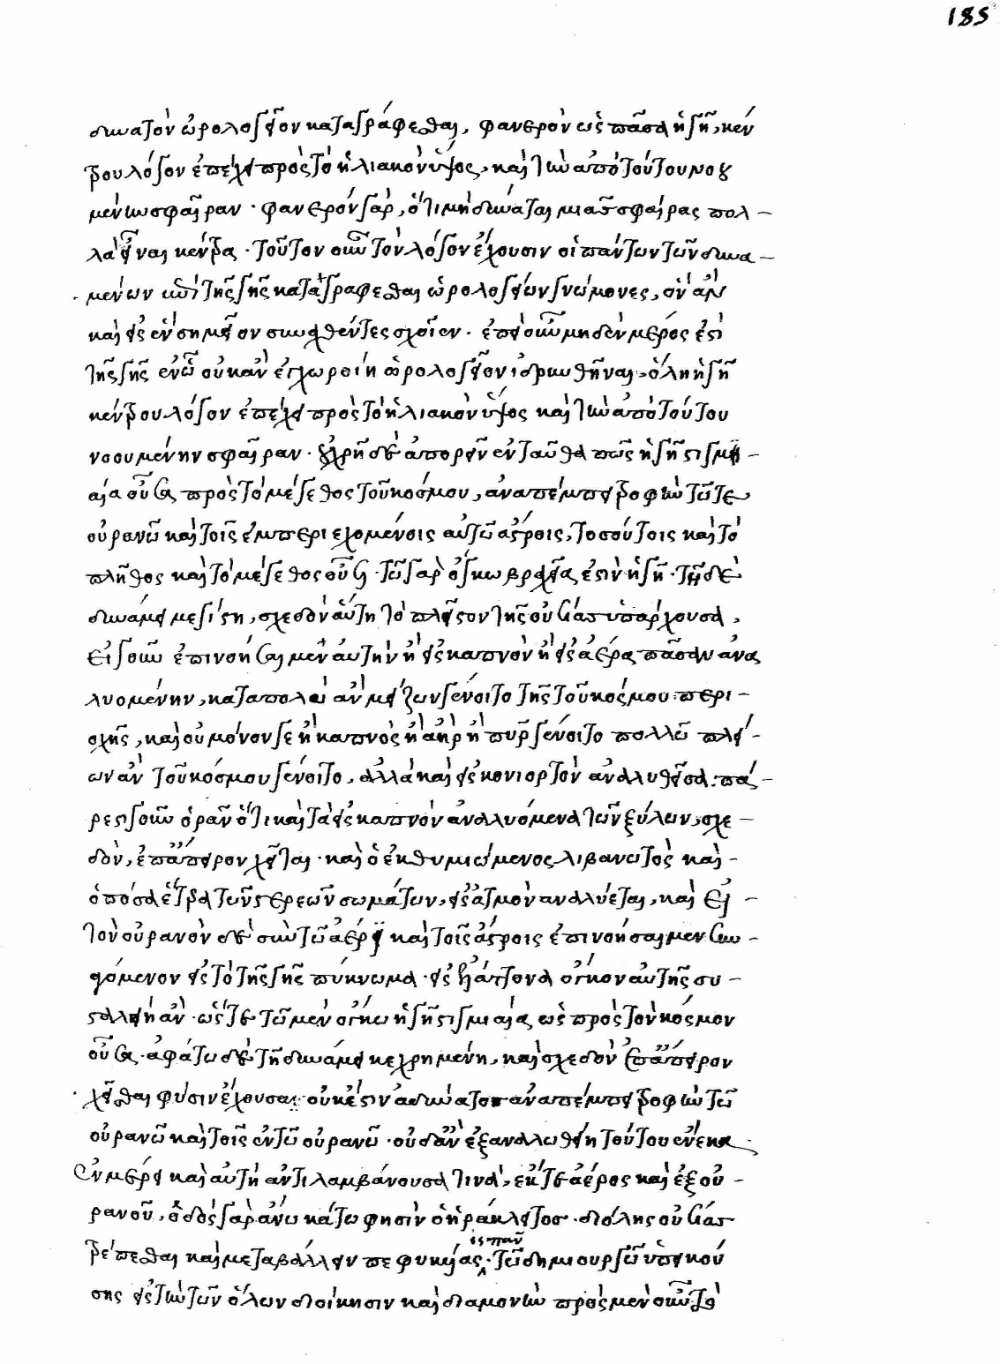 185
δυνατὸν ὡρολογεῖον καταγράφεσθαι, φανερὸν ὡς πᾶσα ἡ γῆ, κέν
τρου λόγον ἐπέχει πρὸς τὸ ἡλιακὸν ὕψος, καὶ τὴν ἀπὸ τούτου νοου
μένην σφαῖραν· φανερὸν γὰρ, ὅτι μὴ δύναται μιᾶς σφαίρας πολ-
λὰ εἶναι κέντρα· τοῦτον οὖν τὸν λόγον ἔχουσιν οἱ πάντων τῶν δυνα-
μένων ἐπὶ τῆς γῆς καταγράφεσθαι ὡρολογείων γνώμονες, ὃν ἂν
καὶ εἰς ἓν σημεῖον συναχθέντες σχοῖεν· ἐπεὶ οὖν μηδὲν μέρος ἐστὶ
τῆς γῆς ἐν ᾧ οὐκ ἂν ἐγχωροίη ὡρολογεῖον ἱδρυνθῆναι, ὅλη ἡ γῆ
κέντρου λόγον ἐπέχει πρὸς τὸ ἡλιακὸν ὕψος καὶ τὴν ἀπὸ τούτου
νοουμένην σφαῖραν· οὐ χρὴ δὲ ἀπορεῖν ἐνταῦθα πῶς ἡ γῆ στιγμι-
αία οὖσα πρὸς τὸ μέγεθος τοῦ κόσμου, ἀναπέμπει τροφὴν τῷ τε
οὐρανῷ καὶ τοῖς ἐμπεριεχομένοις αὐτῷ ἄστροις, τοσούτοις καὶ τὸ
πλῆθος καὶ τὸ μέγεθος οὖσι· τῷ γὰρ ὄγκῳ βραχεῖα ἐστὶν ἡ γῆ· τῇ δὲ
δυνάμει μεγίστη, σχεδὸν αὕτη τὸ πλεῖστον τῆς οὐσίας ὑπάρχουσα,
εἰ γοῦν ἐπινοήσαιμεν αὐτὴν ἢ εἰς καπνὸν ἢ εἰς ἀέρα πᾶσαν ἀνα
λυομένην, κατὰ πολὺ ἂν μείζων γένοιτο τῆς τοῦ κόσμου περι-
οχῆς, καὶ οὐ μόνον γε ἢ καπνὸς ἢ ἀὴρ ἢ πῦρ γένοιτο πολλῷ πλεί-
ων ἂν τοῦ κόσμου γένοιτο, ἀλλὰ καὶ εἰς κονιορτὸν ἀναλυθεῖσα· πά-
ρεστι γοῦν ὁρᾶν ὅτι καὶ τὰ εἰς καπνὸν ἀναλυόμενα τῶν ξύλων, σχε-
δὸν, ἐπ' ἄπειρον χεῖται· καὶ ὁ ἐκθυμιώμενος λιβανωτὸς καὶ-
ὁπόσα ἕτερα τῶν στερεῶν σωμάτων, εἰς ἀτμὸν ἀναλύεται, καὶ εἰ-
τὸν οὐρανὸν δὲ σὺν τῷ ἀέρι καὶ τοῖς ἄστροις ἐπινοήσαιμεν συνα-
γόμενον εἰς τὸ τῆς γῆς πύκνωμα· εἰς ἐλάττονα ὄγκον αὐτῆς συ-
σταλείη ἂν· ὥστε τῷ μὲν ὄγκῳ ἡ γῆ στιγμιαία ὡς πρὸς τὸν κόσμον
οὖσα· ἀφάτῳ δὲ τῇ δυνάμει κεχρημένη, καὶ σχεδὸν ἐπ' ἄπειρον
χεῖσθαι φύσιν ἔχουσα· οὐκ ἔστιν ἀδύνατος ἀναπέμπειν τροφὴν τῷ
οὐρανῷ καὶ τοῖς ἐν τῷ οὐρανῷ· οὐδ' ἂν ἐξαναλωθείη τούτου ἕνεκα·
ἐν μέρει καὶ αὐτὴ ἀντιλαμβάνουσα τινὰ, ἔκ τε ἀέρος καὶ ἐξ οὐ-
ρανοῦ, ὁδὸς γὰρ ἄνω κάτω φησὶν ὁ ἡράκλειτος· δι' ὅλης οὐσίας
εἰς πᾶν
τρέπεσθαι καὶ μεταβάλλειν πεφυκυίας· τῷ δημιουργῷ ὑπεικού
σης εἰς τὴν τῶν ὅλων διοίκησιν καὶ διαμονὴν πρὸς μὲν οὖν τὸ